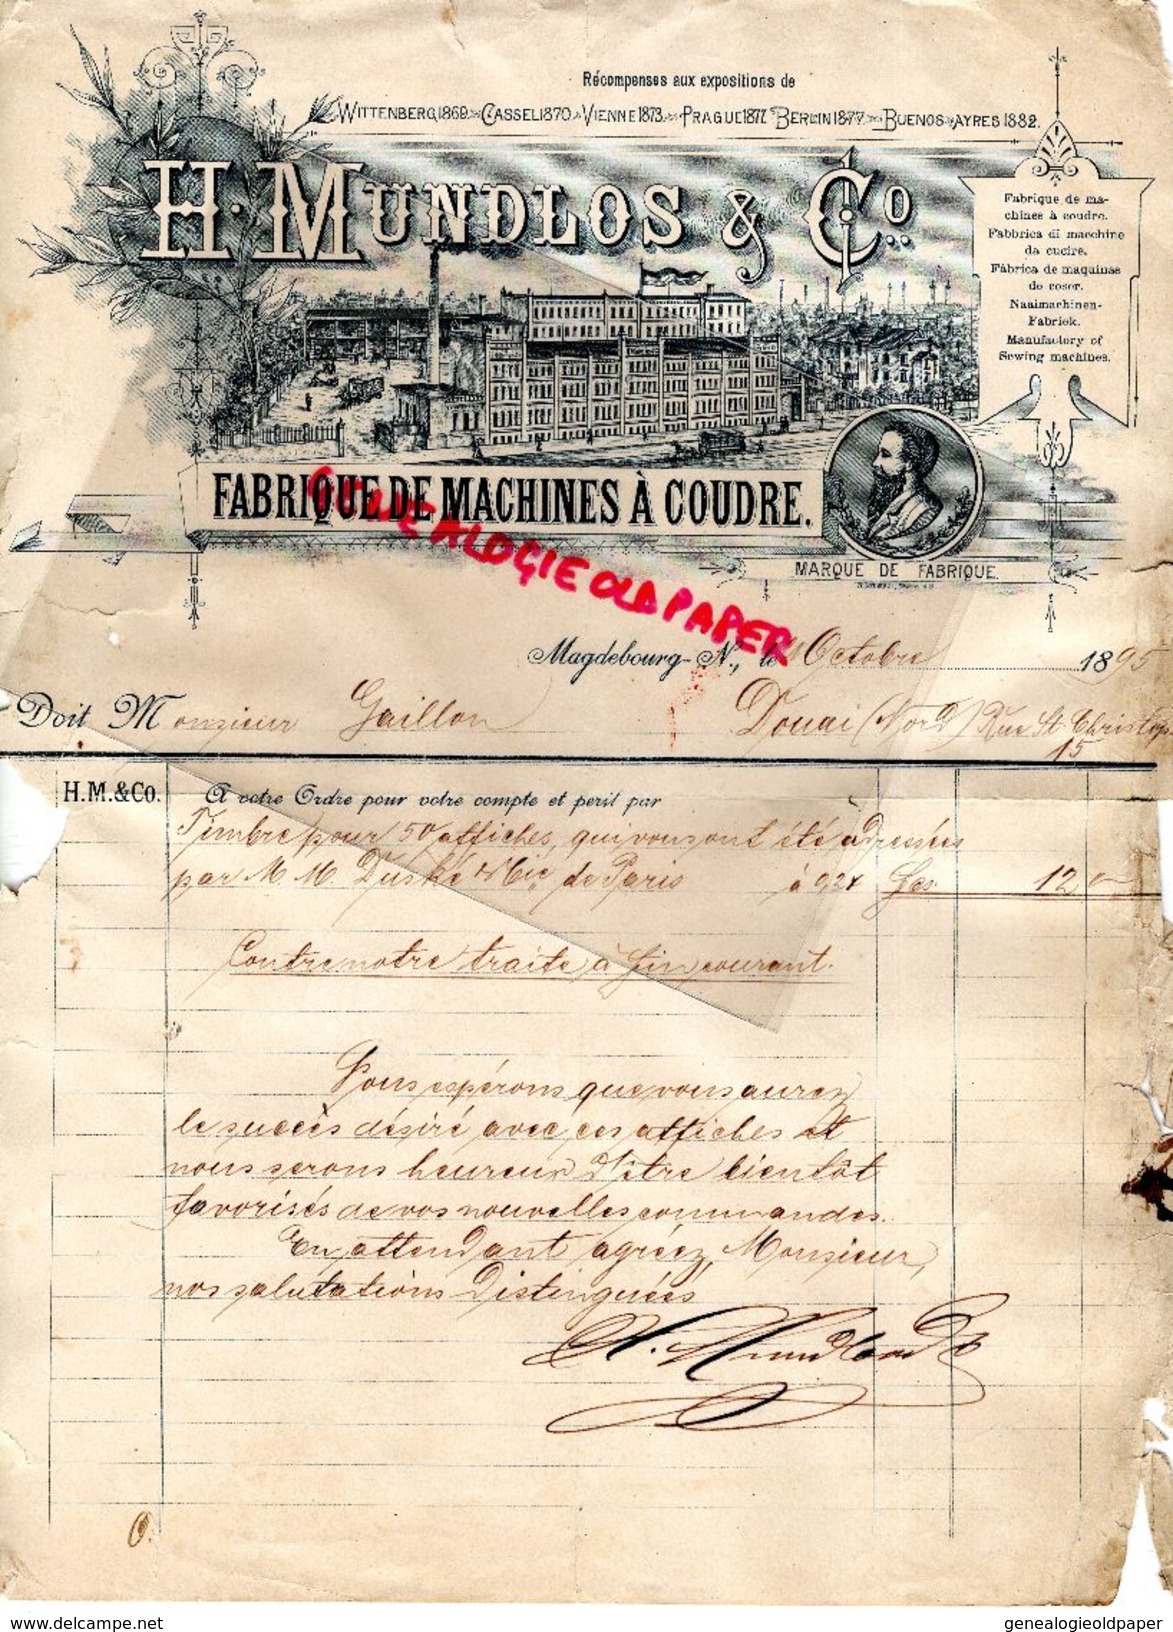 Récompenses aux expositions de
WITTENBERG 1869. CASSEL 1870. VIENNE 1873. PRAGUE 1877. BERLIN 1877. BUENOS-AYRES 1882.
H. MUNDLOS & Co.
Fabrique de ma-
chines à coudre.
Fabbrica di macchine
da cucire.
Fábrica de maquinas
de coser.
Naaimachinen-
Fabriek.
Manufactory of
Sewing machines.
FABRIQUE DE MACHINES À COUDRE.
GENEALOGIE OLD PAPER
MARQUE DE FABRIQUE.
Magdebourg-N., le Octobre 1895
Doit Monsieur Gaillon Douai (Nord) Rue St. Christop.
15
H.M.&Co. A votre Ordre pour votre compte et peril par
Timbre pour 50 affiches, qui vous ont été adressées
par M. M. Duské & Cie de Paris à 0,24 fcs. 12
Contre notre traite à fin courant.
Nous espérons que vous aurez
le succès désiré avec ces affiches et
nous serons heureux d'être bientôt
favorisés de vos nouvelles commandes.
En attendant agréez, Monsieur,
nos salutations distinguées
H. Mundlos & Co
delcampe.net
genealogieoldpaper